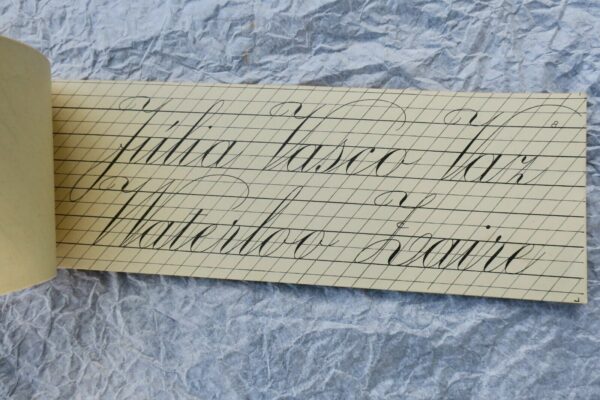 Júlia Vasco Vaz
Waterloo Zaire